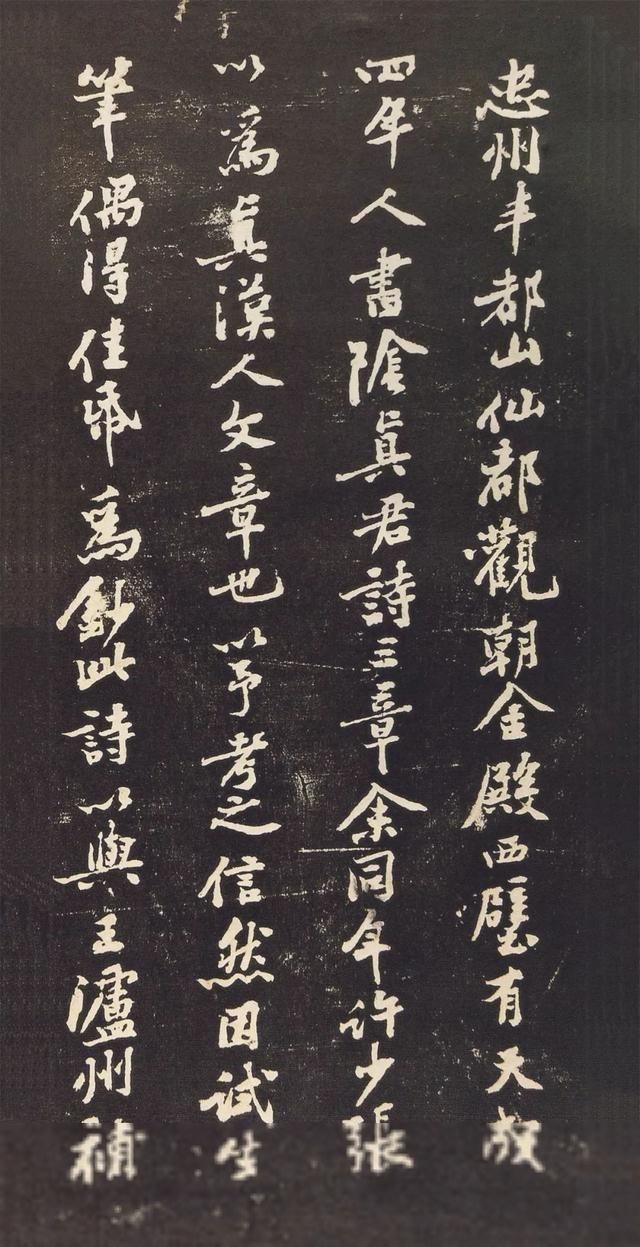 忠州丰都山仙都觀朝金殿西壁有天
四年人書陰眞君詩三章余同年許少張
以爲眞漢人文章也以予考之信然因試生
筆偶得佳帋爲鈔此詩以與王瀘州補